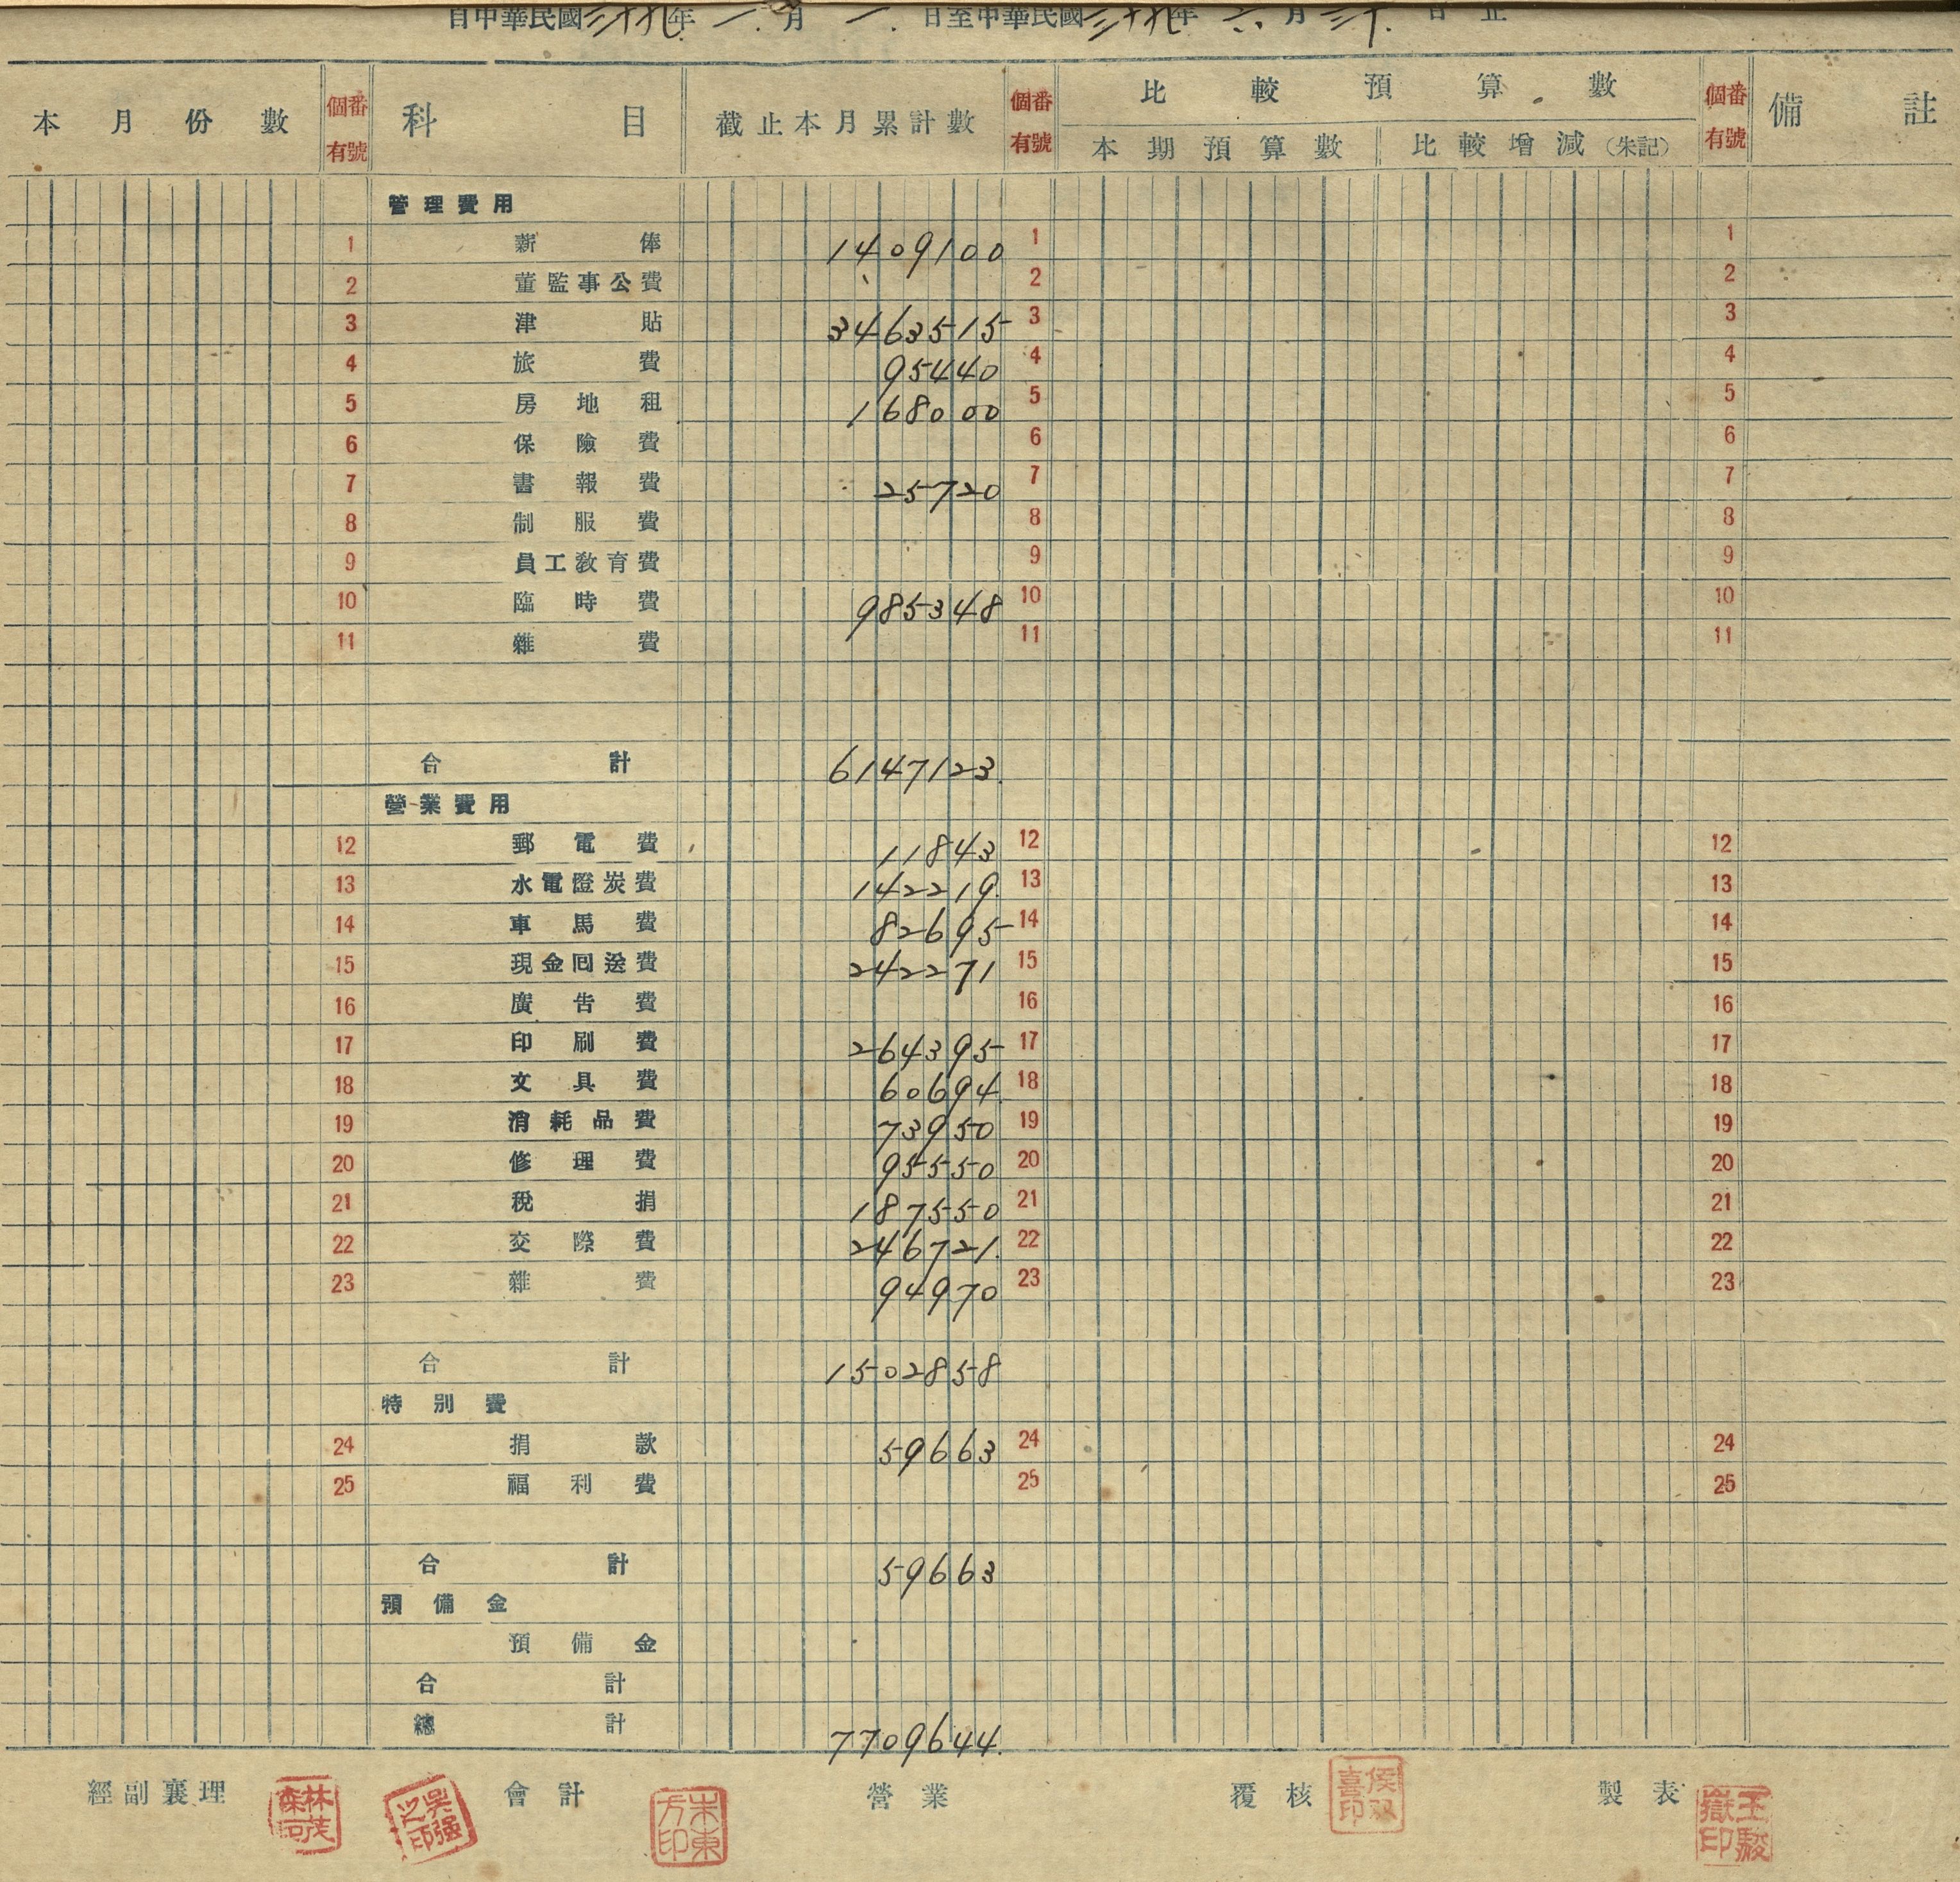 自中華民國三十九年一月一日至中華民國三十九年六月三十日止
本月份數 個有番號 科目 截止本月累計數 個有番號 比較預算數 個有番號 備註
本期預算數 比較增減（朱記）
管理費用
1 薪俸 1409100 1 1
2 董監事公費 2 2
3 津貼 3463515 3 3
4 旅費 95440 4 4
5 房地租 168000 5 5
6 保險費 6 6
7 書報費 25720 7 7
8 制服費 8 8
9 員工教育費 9 9
10 臨時費 985348 10 10
11 雜費 11 11
合計 6147123
營業費用
12 郵電費 11843 12 12
13 水電燈炭費 142219 13 13
14 車馬費 82695 14 14
15 現金回送費 242271 15 15
16 廣告費 16 16
17 印刷費 264395 17 17
18 文具費 60694 18 18
19 消耗品費 73950 19 19
20 修理費 95550 20 20
21 稅捐 187550 21 21
22 交際費 246721 22 22
23 雜費 94970 23 23
合計 1502858
特別費
24 捐款 59663 24 24
25 福利費 25 25
合計 59663
預備金
預備金
合計
總計 7709644
經副襄理 吳强之印 會計 朱東方印 營業 覆核 製表 王駿嶽印